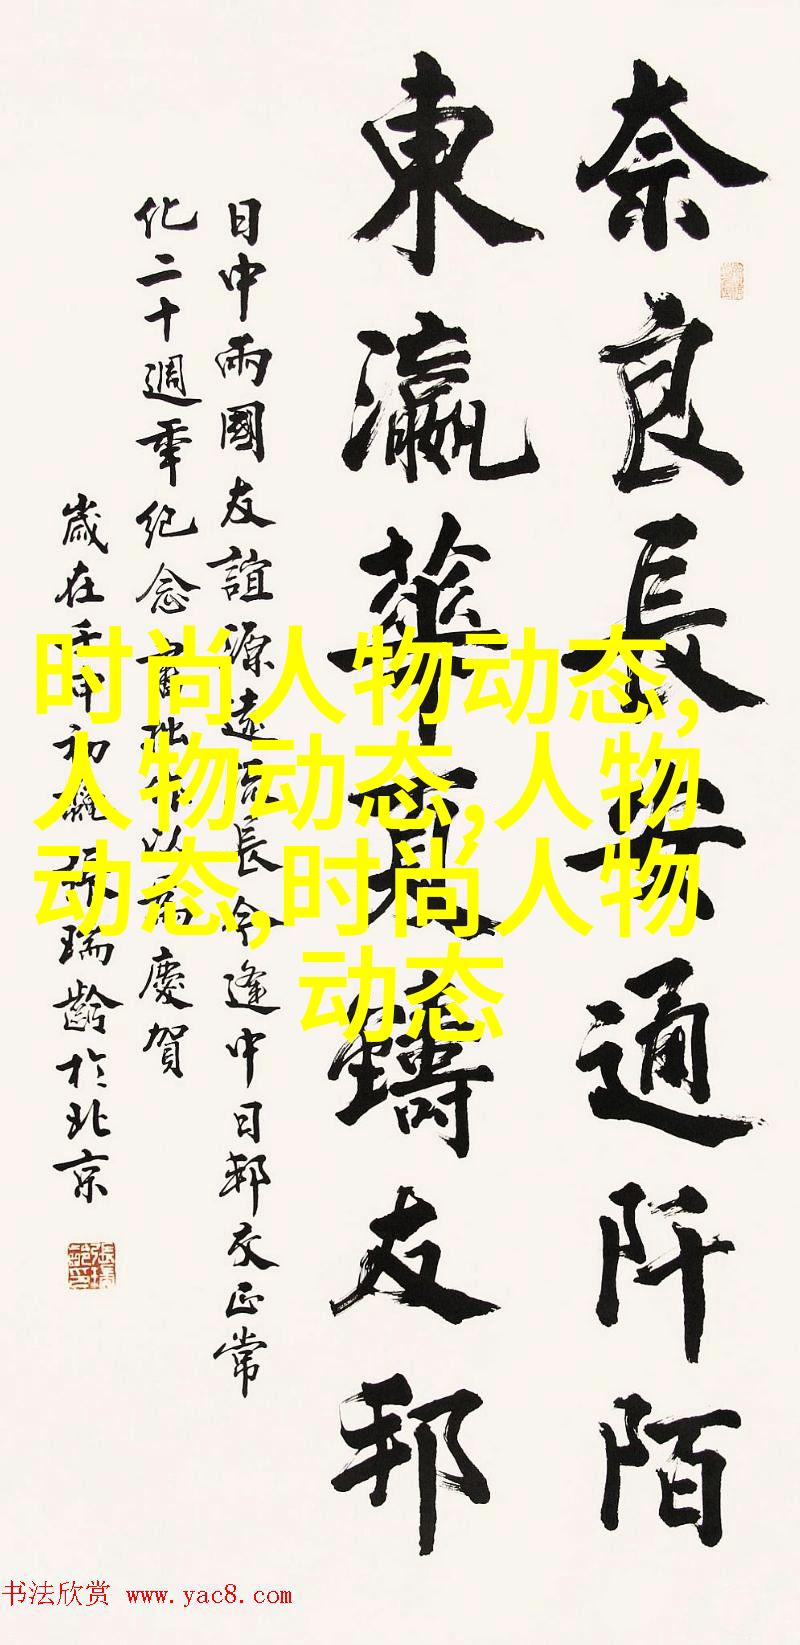 奈良長安通阡陌
東瀛華夏鑄友邦
日中兩國友誼源遠流長今逢中日邦交正常
化二十週年紀念書此以為慶賀
歲在壬申初張瑞齡於北京
时尚人物动态,
人物动态,人物
动态,时尚人物
动态
书法欣赏 www.yac8.com